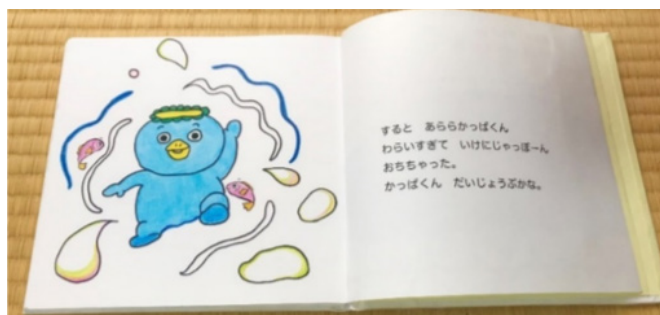 すると　あららかっぱくん
わらいすぎて　いけにじゃっぽーん
おちちゃった。
かっぱくん　だいじょうぶかな。